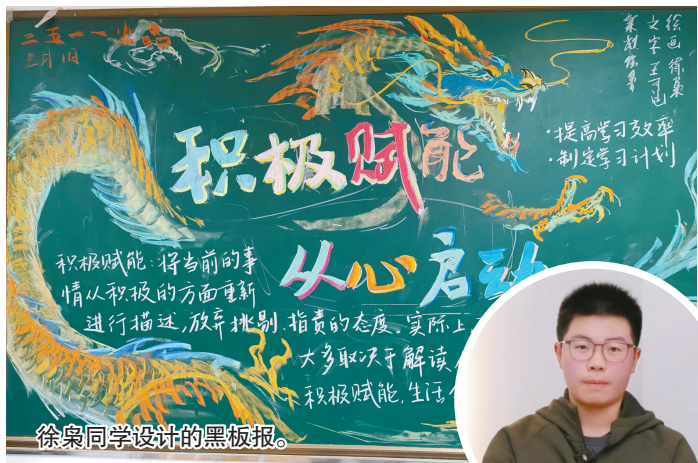 二五一一出品
三月一日
绘画 徐枭
文字 王可迅
积极赋能
·提高学习效率
·制定学习计划
从心启动
积极赋能:将当前的事
情从积极的方面重新
进行描述,放弃挑剔、指责的态度。实际上,
大多取决于解读
积极赋能,生活
徐枭同学设计的黑板报。